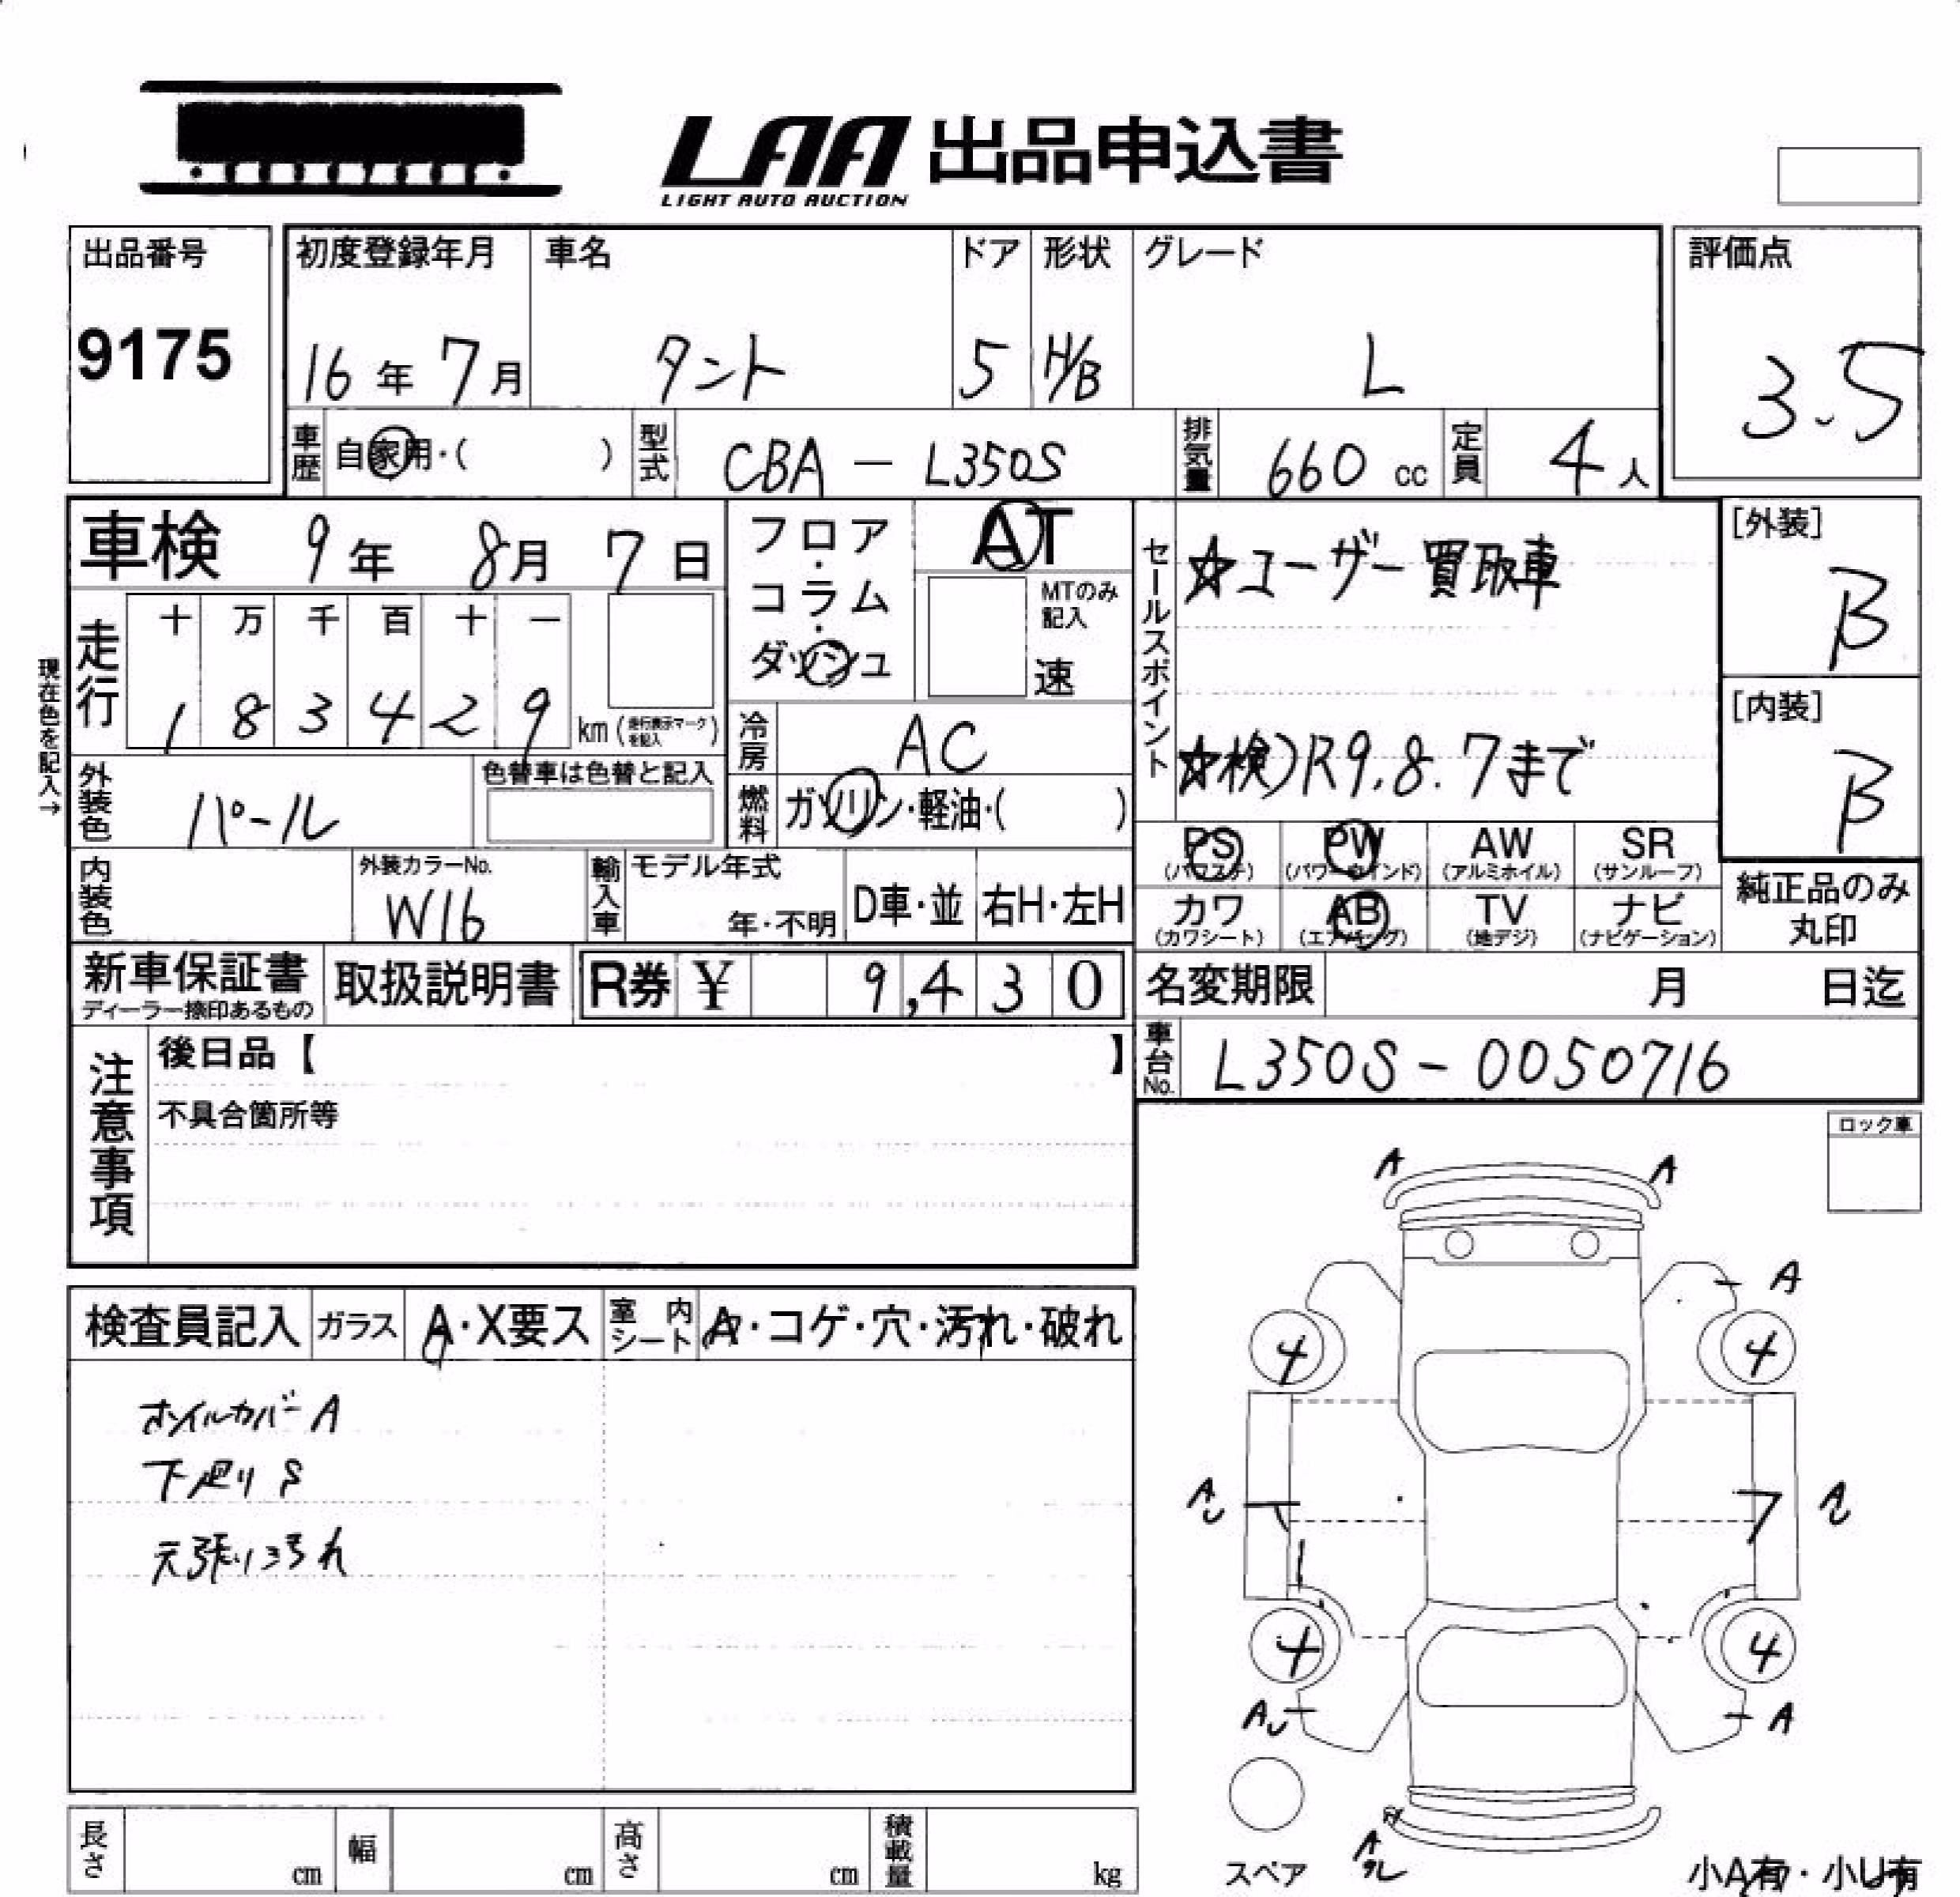 LAA 出品申込書
LIGHT AUTO AUCTION
出品番号
9175
初度登録年月
16年 7月
車名
タント
ドア
5
形状
H/B
グレード
L
評価点
3.5
車歴 自家用・( )
型式 CBA - L350S
排気量 660 cc
定員 4人
車検 9年 8月 7日
走行
十 万 千 百 十 一
1 8 3 4 2 9 km (走行表示マークを記入)
現在色を記入→
フロア・コラム・ダッシュ
AT
MTのみ記入
速
冷房 AC
燃料 ガソリン・軽油・( )
外装色 パール
色替車は色替と記入
内装色
外装カラーNo.
W16
輸入車
モデル年式
年・不明
D車・並
右H・左H
セールスポイント
☆ユーザー買取車
☆検)R9.8.7まで
[外装]
B
[内装]
B
PS (パワステ)
PW (パワーウインド)
AW (アルミホイル)
SR (サンルーフ)
カワ (カワシート)
AB (エアバッグ)
TV (地デジ)
ナビ (ナビゲーション)
純正品のみ丸印
新車保証書
ディーラー捺印あるもの
取扱説明書
R券 ¥ 9,430
名変期限 月 日迄
車台No. L350S-0050716
注意事項
後日品【 】
不具合箇所等
ロック車
検査員記入
ガラス A・X要ス
室内シート A・コゲ・穴・汚れ・破れ
ホイルカバーA
下廻りS
天張り汚れ
A A
A
4 4
AU AU
4 4
AU A
A
スペア
小A有・小U有
長さ cm
幅 cm
高さ cm
積載量 kg